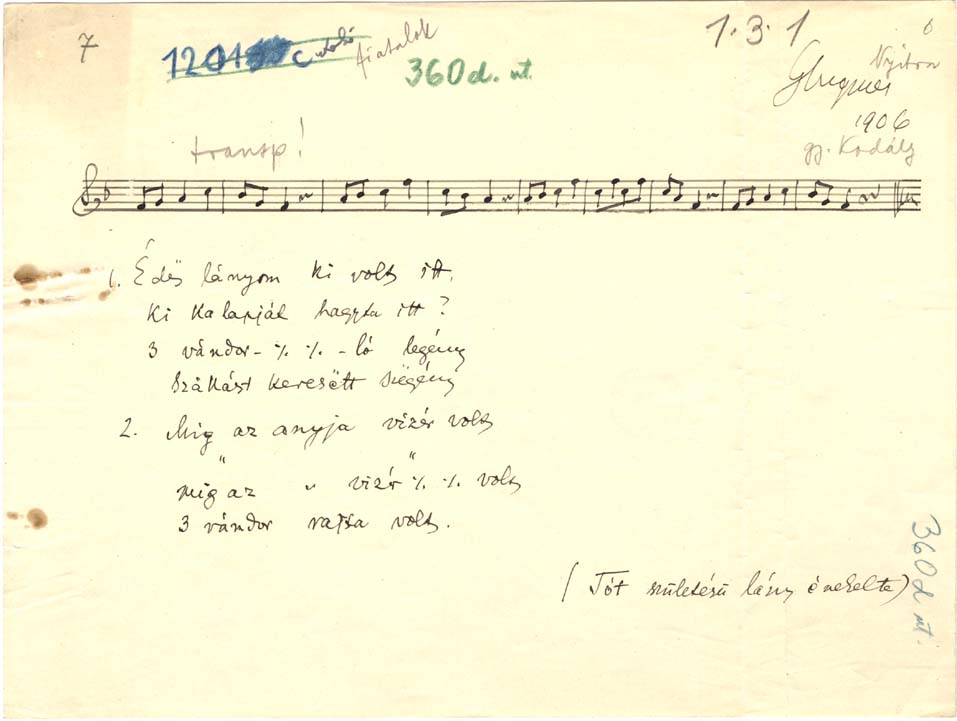 7
1201 c utolsó fiatalok
1.3.1
6
360d. nt.
Nyitra
Ghymes
1906
gy. Kodály
transp!
1. Édës lányom ki volt itt,
ki kalapját hagyta itt?
3 vándor-٪ ٪-ló legény
Szállást keresëtt szëgény
2. Míg az anyja vízér volt
" "
míg az " vízér ٪ ٪ volt
3 vándor rajta volt.
(Tót születésü lány énekelte)
360d nt.